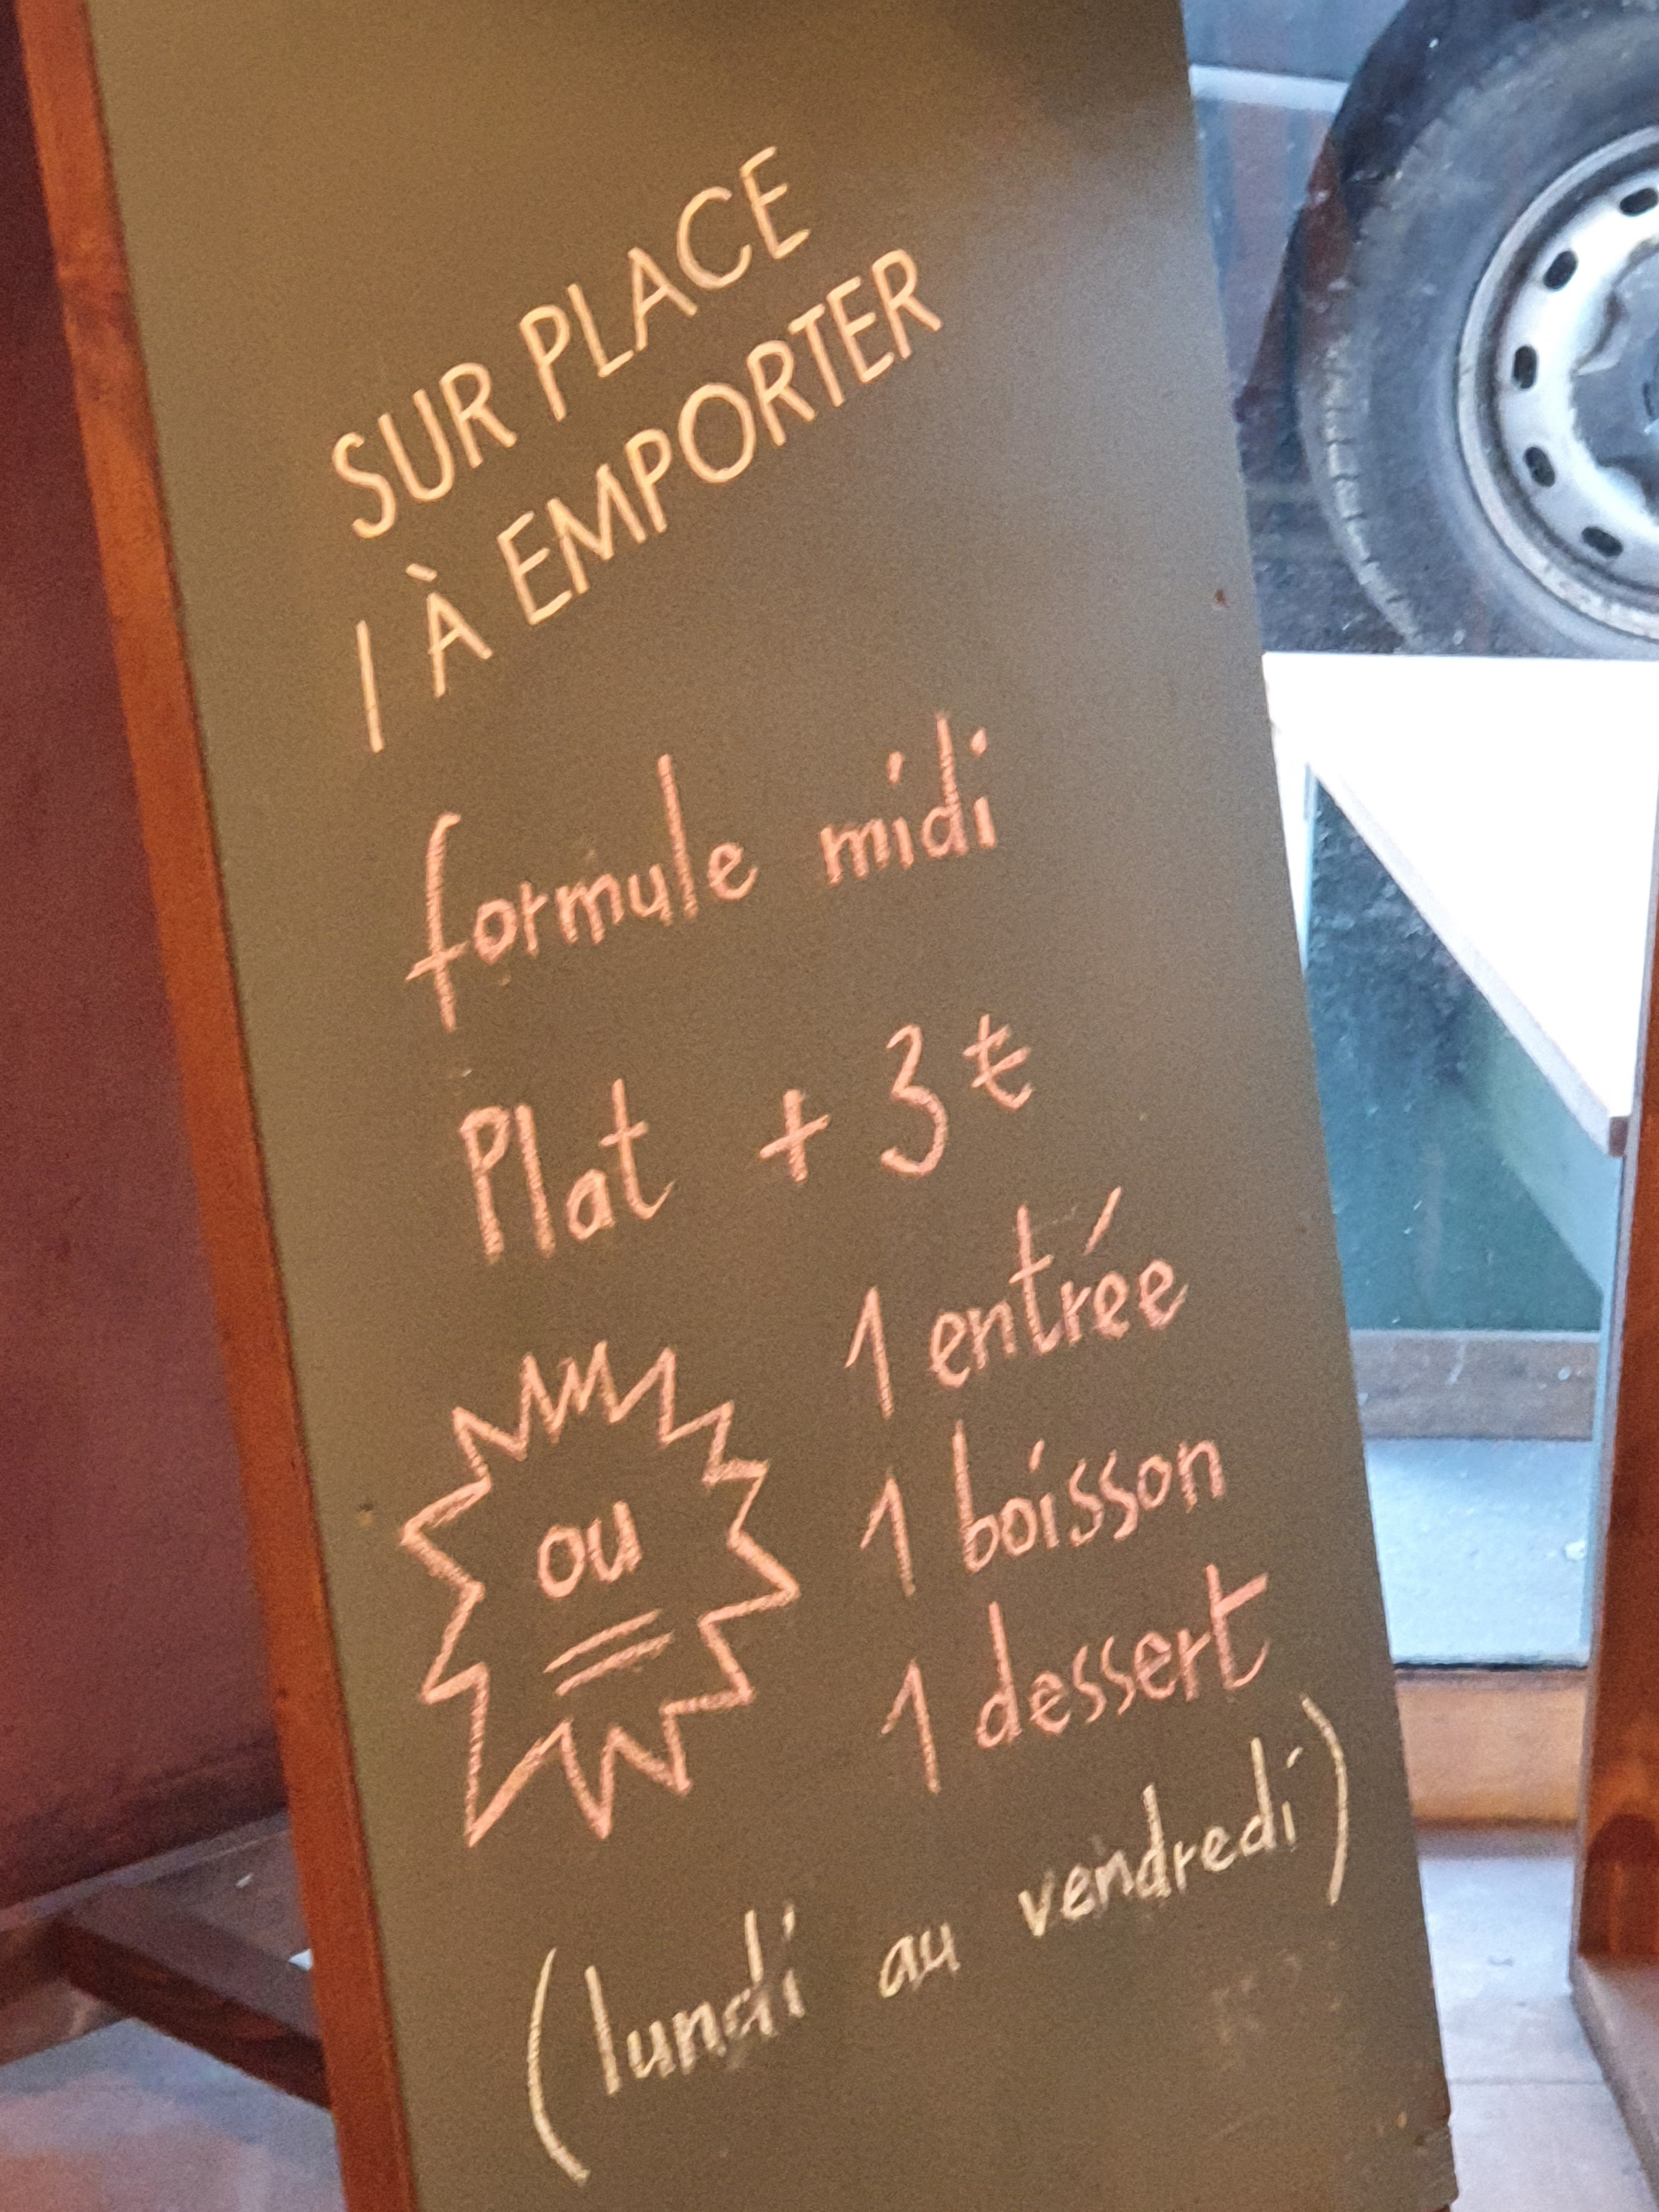 SUR PLACE
/ À EMPORTER
formule midi
Plat + 3€
1 entrée
ou
1 boisson
1 dessert
(lundi au vendredi)